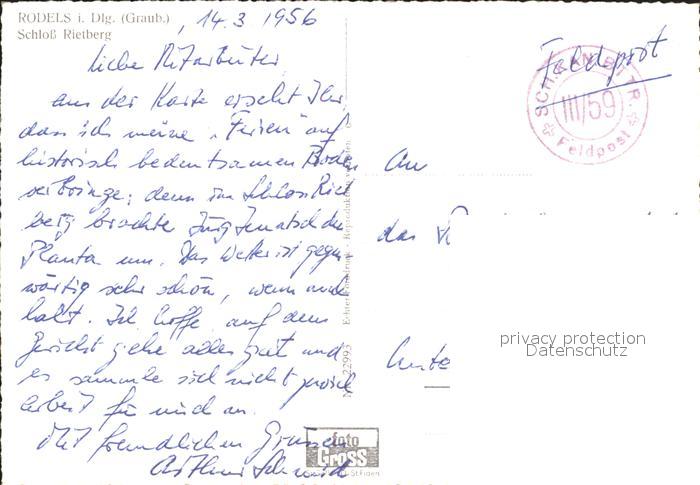 RODELS i. Dlg. (Graub.)
Schloß Rietberg
, 14.3 1956
Liebe Mitarbeiter,
aus der Karte erseht Ihr
dass ich meine „Ferien" auf
historisch bedeutsamen Boden
verbringe; denn im Schloss Riet
berg brachte Jürg Jenatsch den
Planta um. Das Wetter ist gegen
wärtig sehr schön, wenn auch
kalt. Ich hoffe, auf dem
Gericht gehe alles gut und
es sammle sich nicht zuviel
Arbeit für mich an.
Mit freundlichen Grüssen
Arthur Schmid
Feldpost
III/59
Feldpost
An
das
privacy protection
Datenschutz
foto
GROSS
St. Fiden